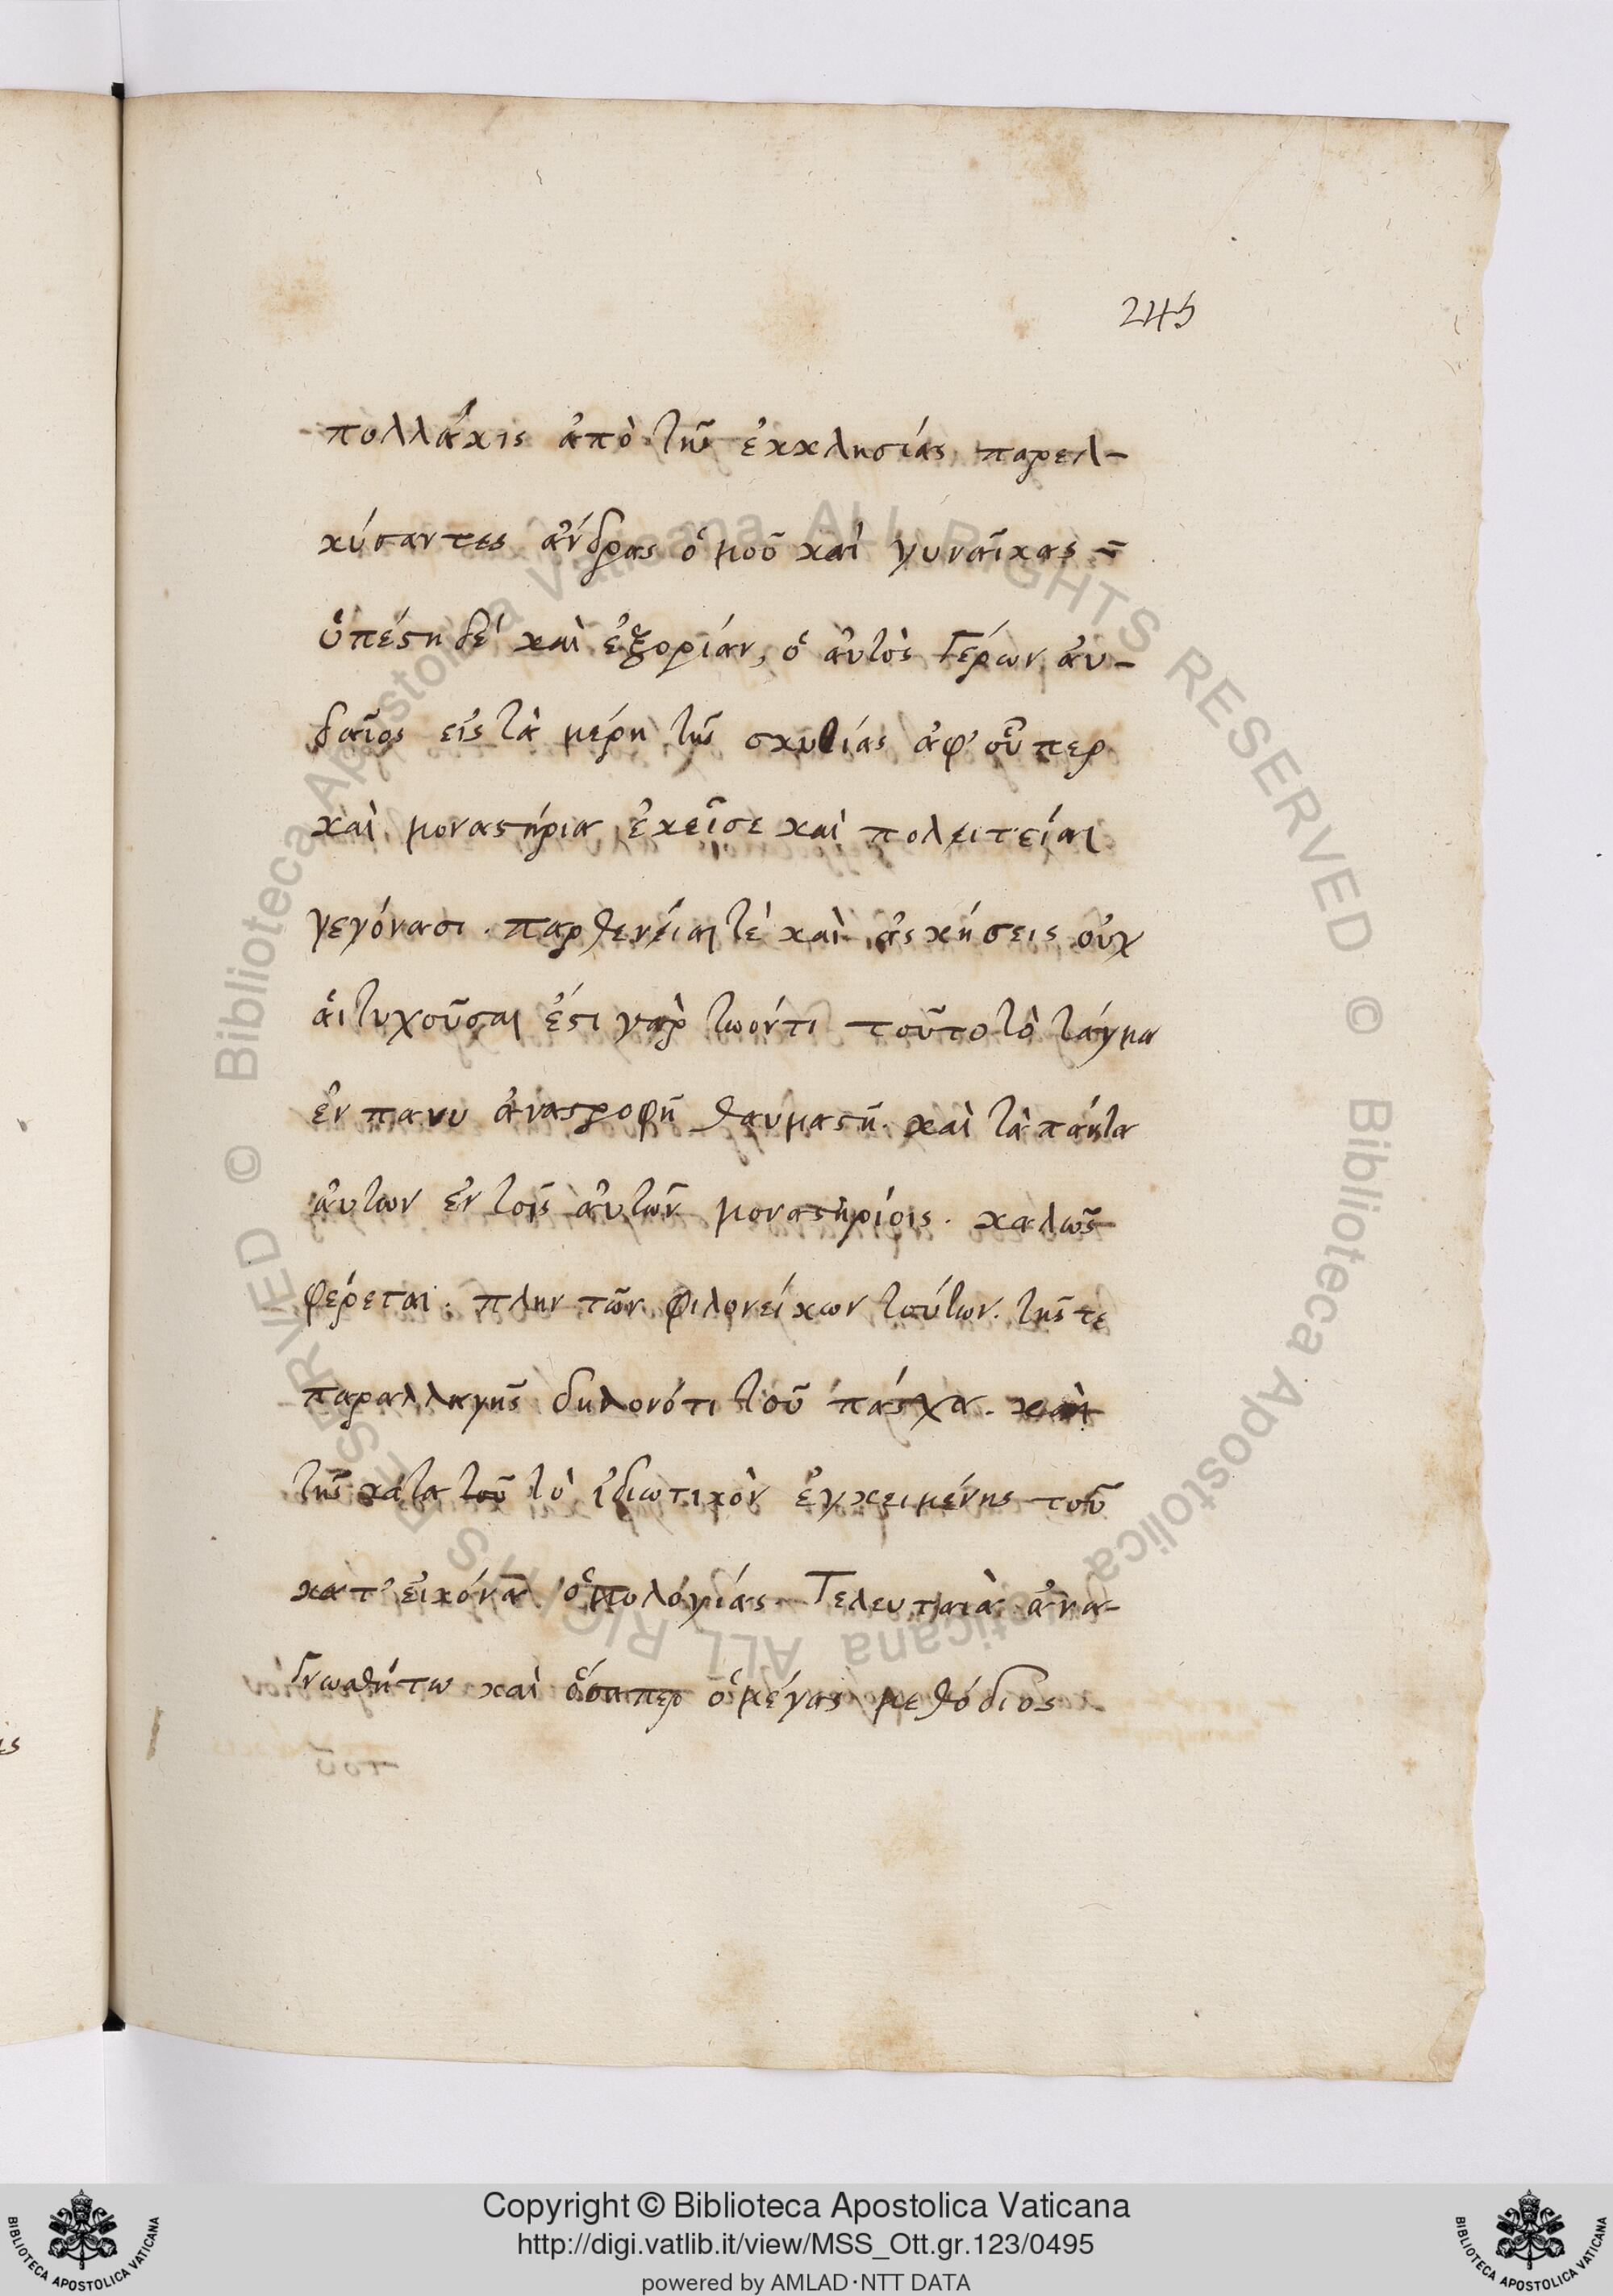 245
πολλάκις ἀπὸ τῆς ἐκκλησίας παρελ-
κύσαντες ἄνδρας ὁμοῦ καὶ γυναῖκας
ὑπέστη δέ καὶ ἐξορίαν, ὁ αὐτὸς Γέρων ἀυ-
δαῖος εἰς τὰ μέρη τῆς σκυθίας ἀφ' οὗπερ
καὶ μοναστήρια ἐκεῖσε καὶ πολειτείαι
γεγόνασι. παρθενείαι τὲ καὶ ἀσκήσεις οὐχ
ἁι τυχοῦσαι ἔστι γαρ τωοντι τοῦτο τὸ τάγμα
ἐν πανυ ἀναστροφῆ θαυμαστῆ. καὶ τὰ πάντα
ἀυτων ἐν τοῖς ἀυτῶν μοναστηρίοις. καλῶς
φέρεται. πλην τῶν φιλονείκων τούτων. τῆς τε
παραλλαγῆς δηλονότι τοῦ πάσχα. καὶ
τῆς κατα τοῦ τὸ ἰδιωτικὸν ἐγκειμένης τοῦ
κατ' εἰκόνα ὁμολόγίας. Τελευταιὰ ἀνα-
Γνωσθήτω καὶ ὅσαπερ ὁ μέγας μεθόδιος
ες
Copyright © Biblioteca Apostolica Vaticana
http://digi.vatlib.it/view/MSS_Ott.gr.123/0495
powered by AMLAD·NTT DATA
BIBLIOTECA APOSTOLICA VATICANA
BIBLIOTECA APOSTOLICA VATICANA
© Biblioteca Apostolica Vaticana ALL RIGHTS RESERVED © Biblioteca Apostolica Vaticana ALL RIGHTS RESERVED